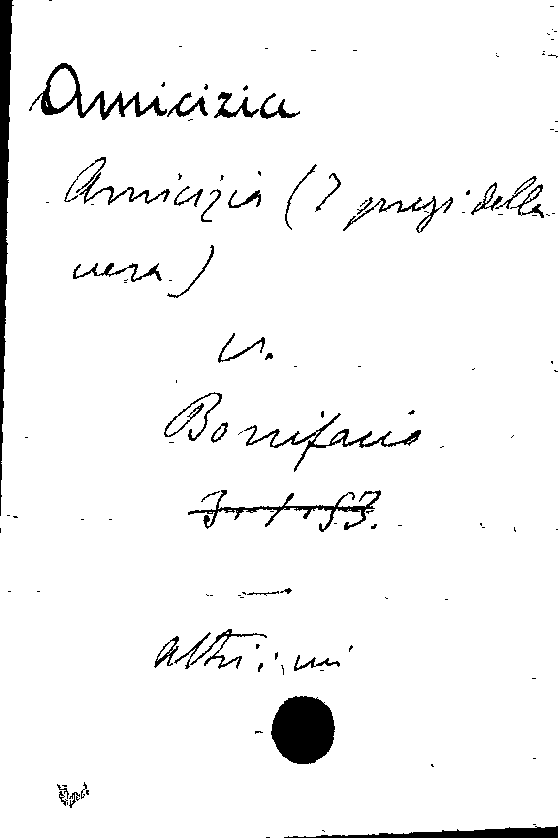 Amicizia
Amicizia (I pregi della
vera)
v.
Bonifacio
3.1.53.
—
altri: